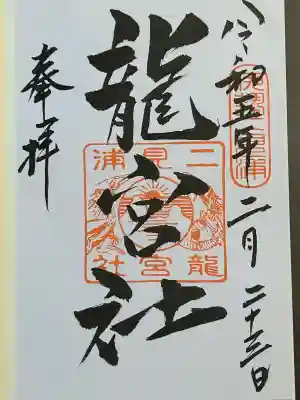 令和五年二月二十三日
龍宮社
二見浦
龍宮社
奉拝